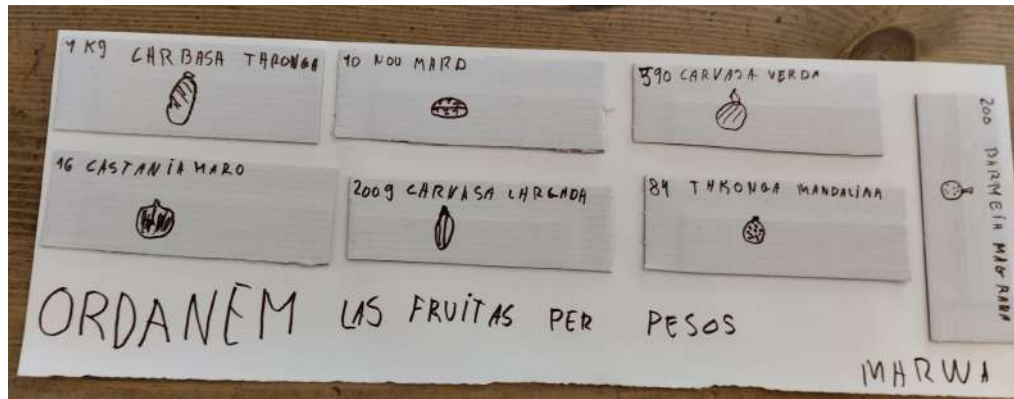 1 KG CARBASA TARONGA
10 NOU MARO
390 CARVASA VERDA
16 CASTANIA MARO
200g CARVASA LARGADA
84 TARONGA MANDALINA
200 BARMEIA MAGRANA
ORDANEM LAS FRUITAS PER PESOS
MARWA